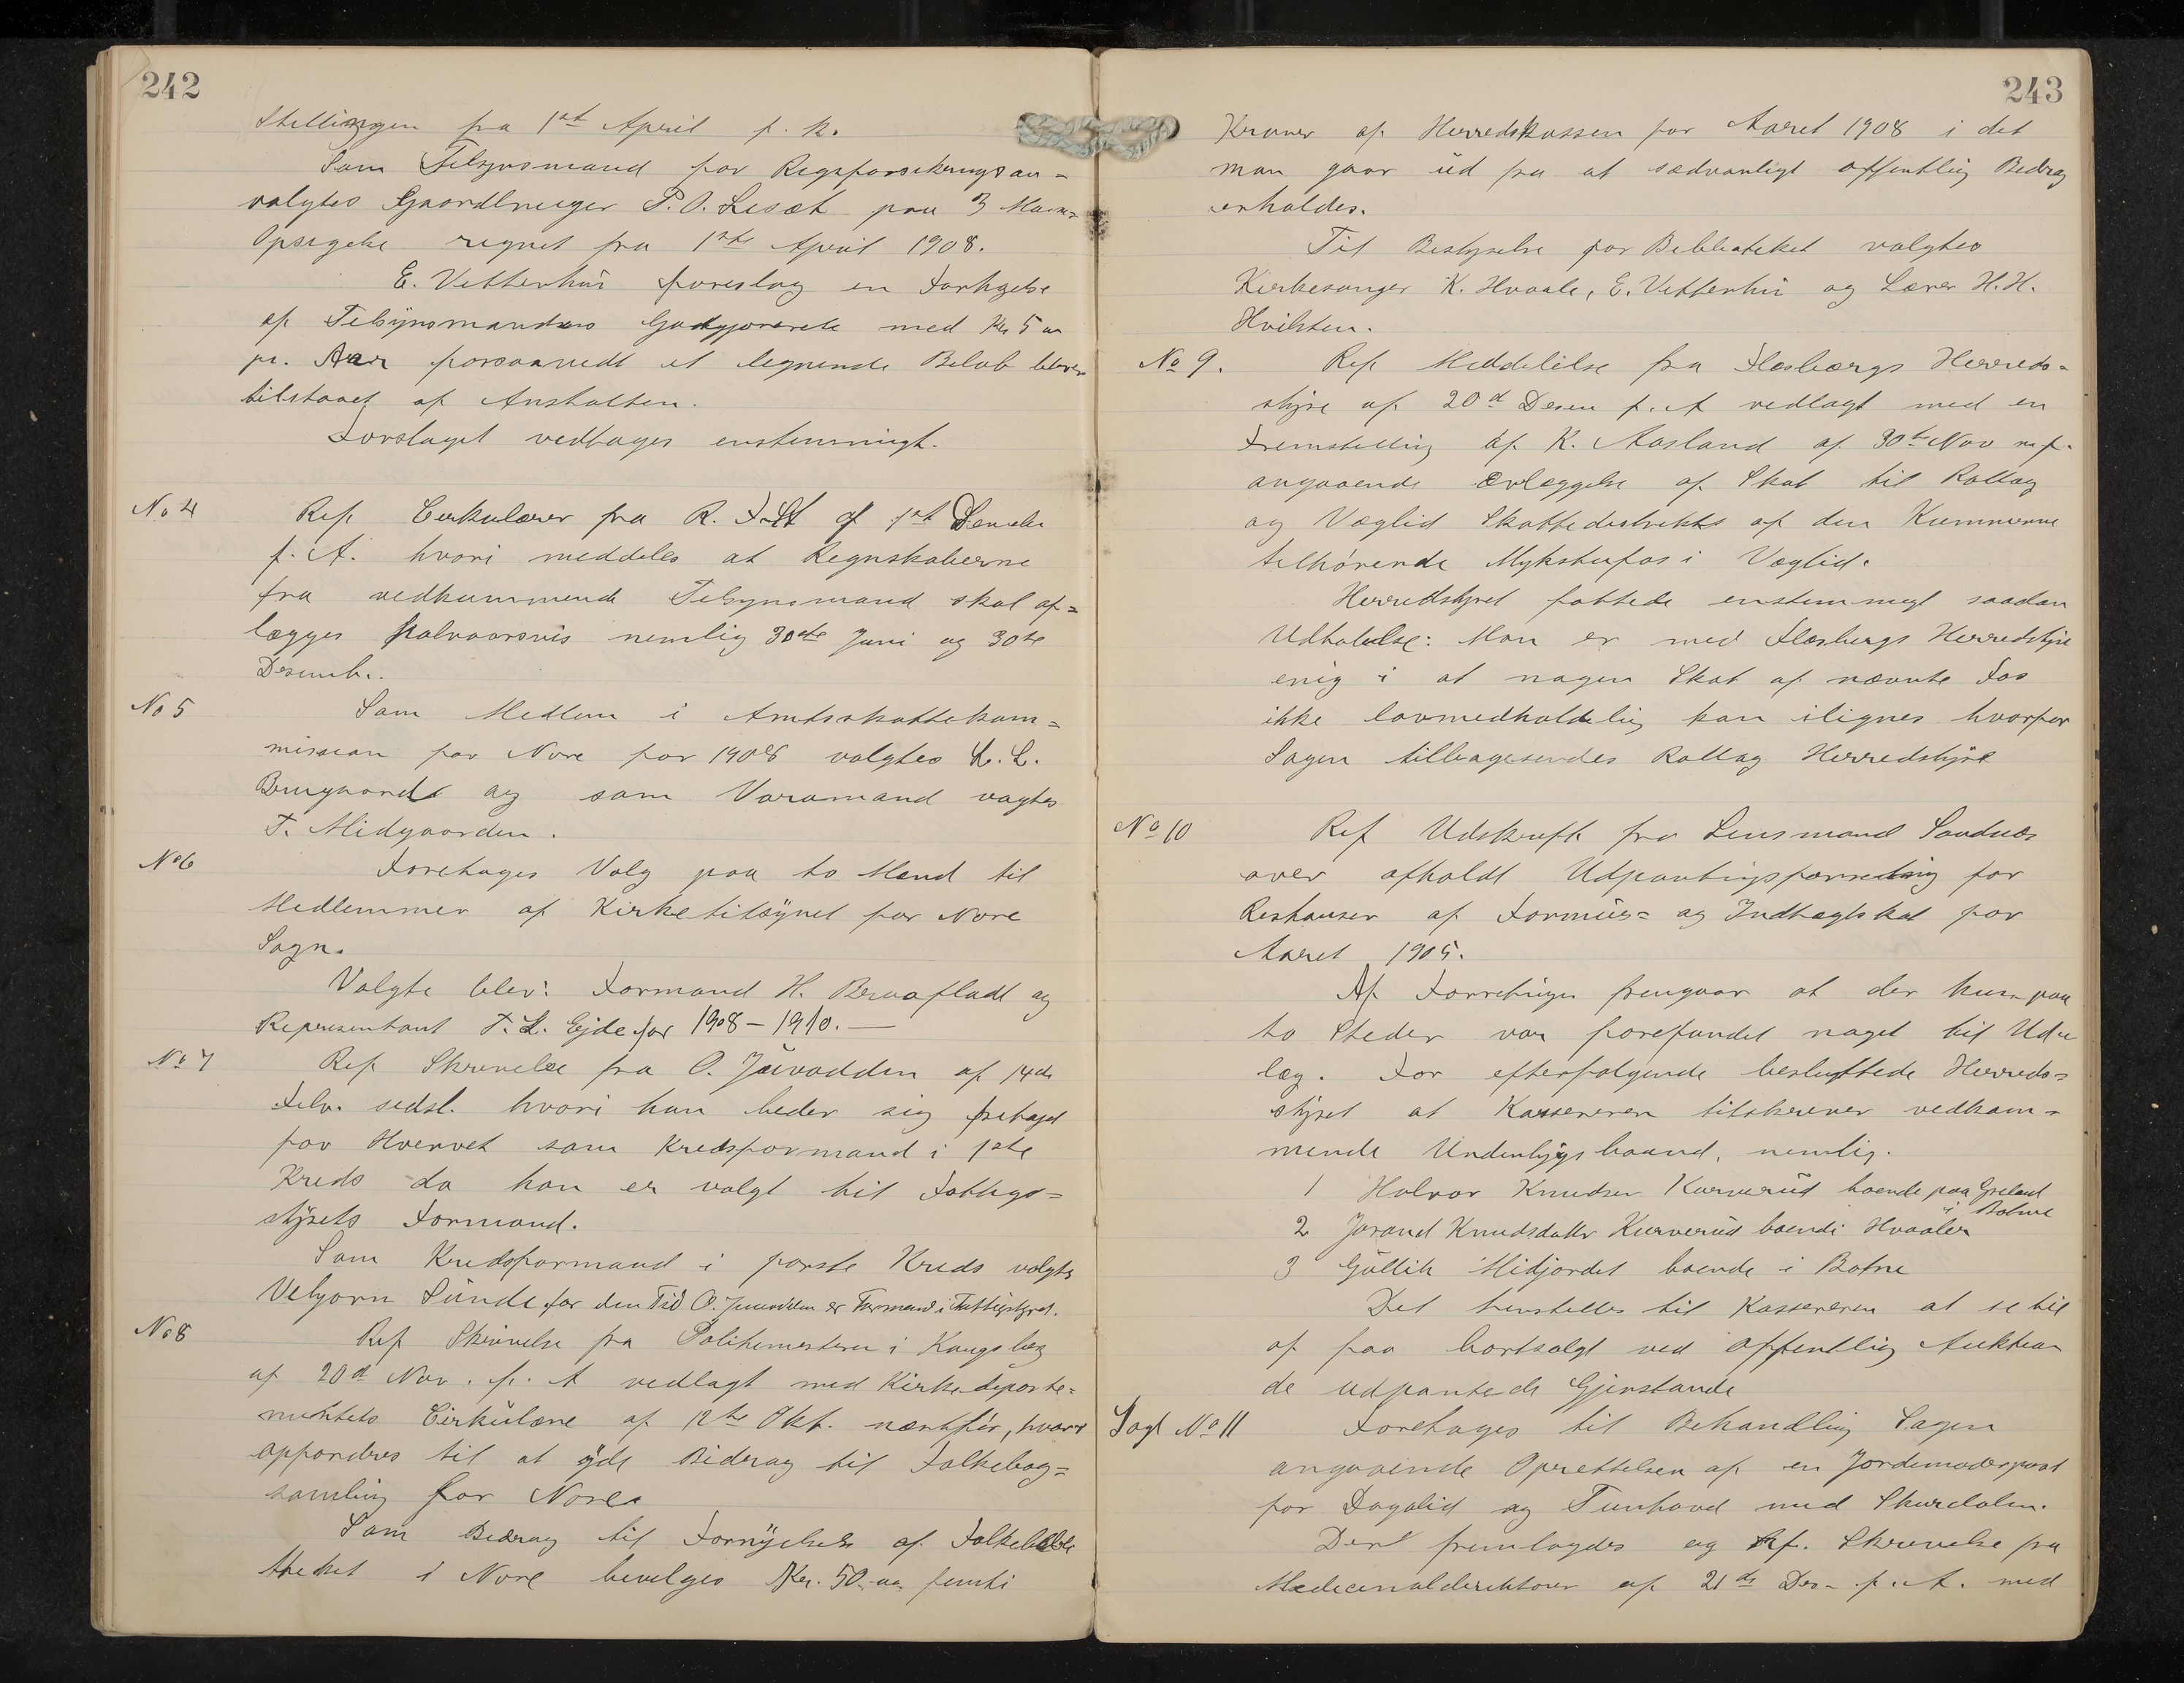 242
Stillingen fra 1ste April f. k.
Som Tilsynsmand for Rigsforsikringsan=
valgtes Gaardbruger P. O. Lesæt paa 3 Maan=
Opsigelse regnet fra 1ste April 1908.
E. Vetterhus foreslog en Forhøgelse
af Tilsynsmandens Godtgjørelse med Kr 5 00
pr. Aar forsaavidt et lignende Beløb blever
tilstaaet af Anstalten.
Forslaget vedtages enstemmigt.
No 4
Ref. Cirkulærer fra R. F. A af 1ste Desember
f. A. hvori meddeles at Regnskaberne
fra vedkommende Tilsynsmand skal af=
lægges halvaarsvis nemlig 30te Juni og 30te
Desemb..
No 5
Som Medlem i Amtsskattekom=
mission for Nore for 1908 valgtes L. L.
Bergaarde og som Varamand vagtes
T. Midgaarden.
No 6
Foretages Valg paa to Mænd til
Medlemmer af Kirketilsynet for Nore
Sogn.
Valgte blev: Formand H. Bervafladt og
Representant T. L. Ejde for 1908 – 1910. —
No 7
Ref. Skrivelse fra O. Juvodden af 14de
Febr. sidstl. hvori han beder sig fritaget
for Hvervet som Kredsformand i 1ste
Kreds da han er valgt til Fattigs=
styrets Formand.
Som Kredsformand i første Kreds valgtes
Vebjørn Sünde for den Tid O. Juvodden er Formand i Fattigstyret.
No 8
Ref Skrivelse fra Politimesteren i Kongsberg
af 20de Nov. f. A vedlagt med Kirkedeparte=
mentets Cirkülære af 12te Okt. næstfør, hvori
opfordres til at yde Bidrag til Folkebog=
samling for Nore.
Som Bidrag til Fornyelse af Folkebiblio
theket i Nore bevilges Kr. 50.00 femti
243
Kroner af Herredskassen for Aaret 1908 i det
man gaar ud fra at sædvanligt offentlig Bidrag
erholdes.
Til Bestyrelse for Bibliateket valgtes
Kirkesanger K. Hvaale, E. Vetterhus og Lærer H. H.
Hvilsten.
No 9.
Ref Meddelelse fra Flesbergs Herreds=
styre af 20de Desem f. A vedlagt med en
Fremstilling af K. Aasland af 30te Nov n. f.
angaaende Erlæggelse af Skat til Rollag
og Væglid Skattedistrikts af den Kummerne
tilhørende Mykstufos i Væglid.
Herredstyret fattede enstemmigt saadan
Udtalelse: Man er med Flesbergs Herredstyre
enig i at nogen Skat af nævnte Fos
ikke lovmedholdelig kan ilignes hvorfor
Sagen tilbagesendes Rollag Herredstyre
No 10
Ref Udskrift fra Lensmand Sandnes
over afholdt Udpantingsforretning for
Reshanser af Formües= og Indtægtskat for
Aaret 1905.
Af Forretningen fremgaar at der kun paa
to Steder var forefundet noget til Ud=
læg. For efterfølgende besluttede Herreds=
styret at Kassereren tilskriver vedkom=
mende Underligsbaand, nemlig.
1 Halvor Knudsen Kurverud boende paa Grelaud
i Botne
2 Jorand Knudsdatter Kurverud boende Hvaaler
3 Güllik Midjordet boende i Botne
Det henstilles til Kassereren at se til
at faa bortsolgt ved offentlig Auktion
de udpantede Gjenstande
Sag No 11
Foretages til Behandling Sagen
angaaende Oprettelsen af en Jordemoderpost
for Dagalid og Tunhovd med Skurdalen.
Der fremlagdes og Ref. Skrivelse fra
Medicinaldirektøren af 21de Des. f. A. med